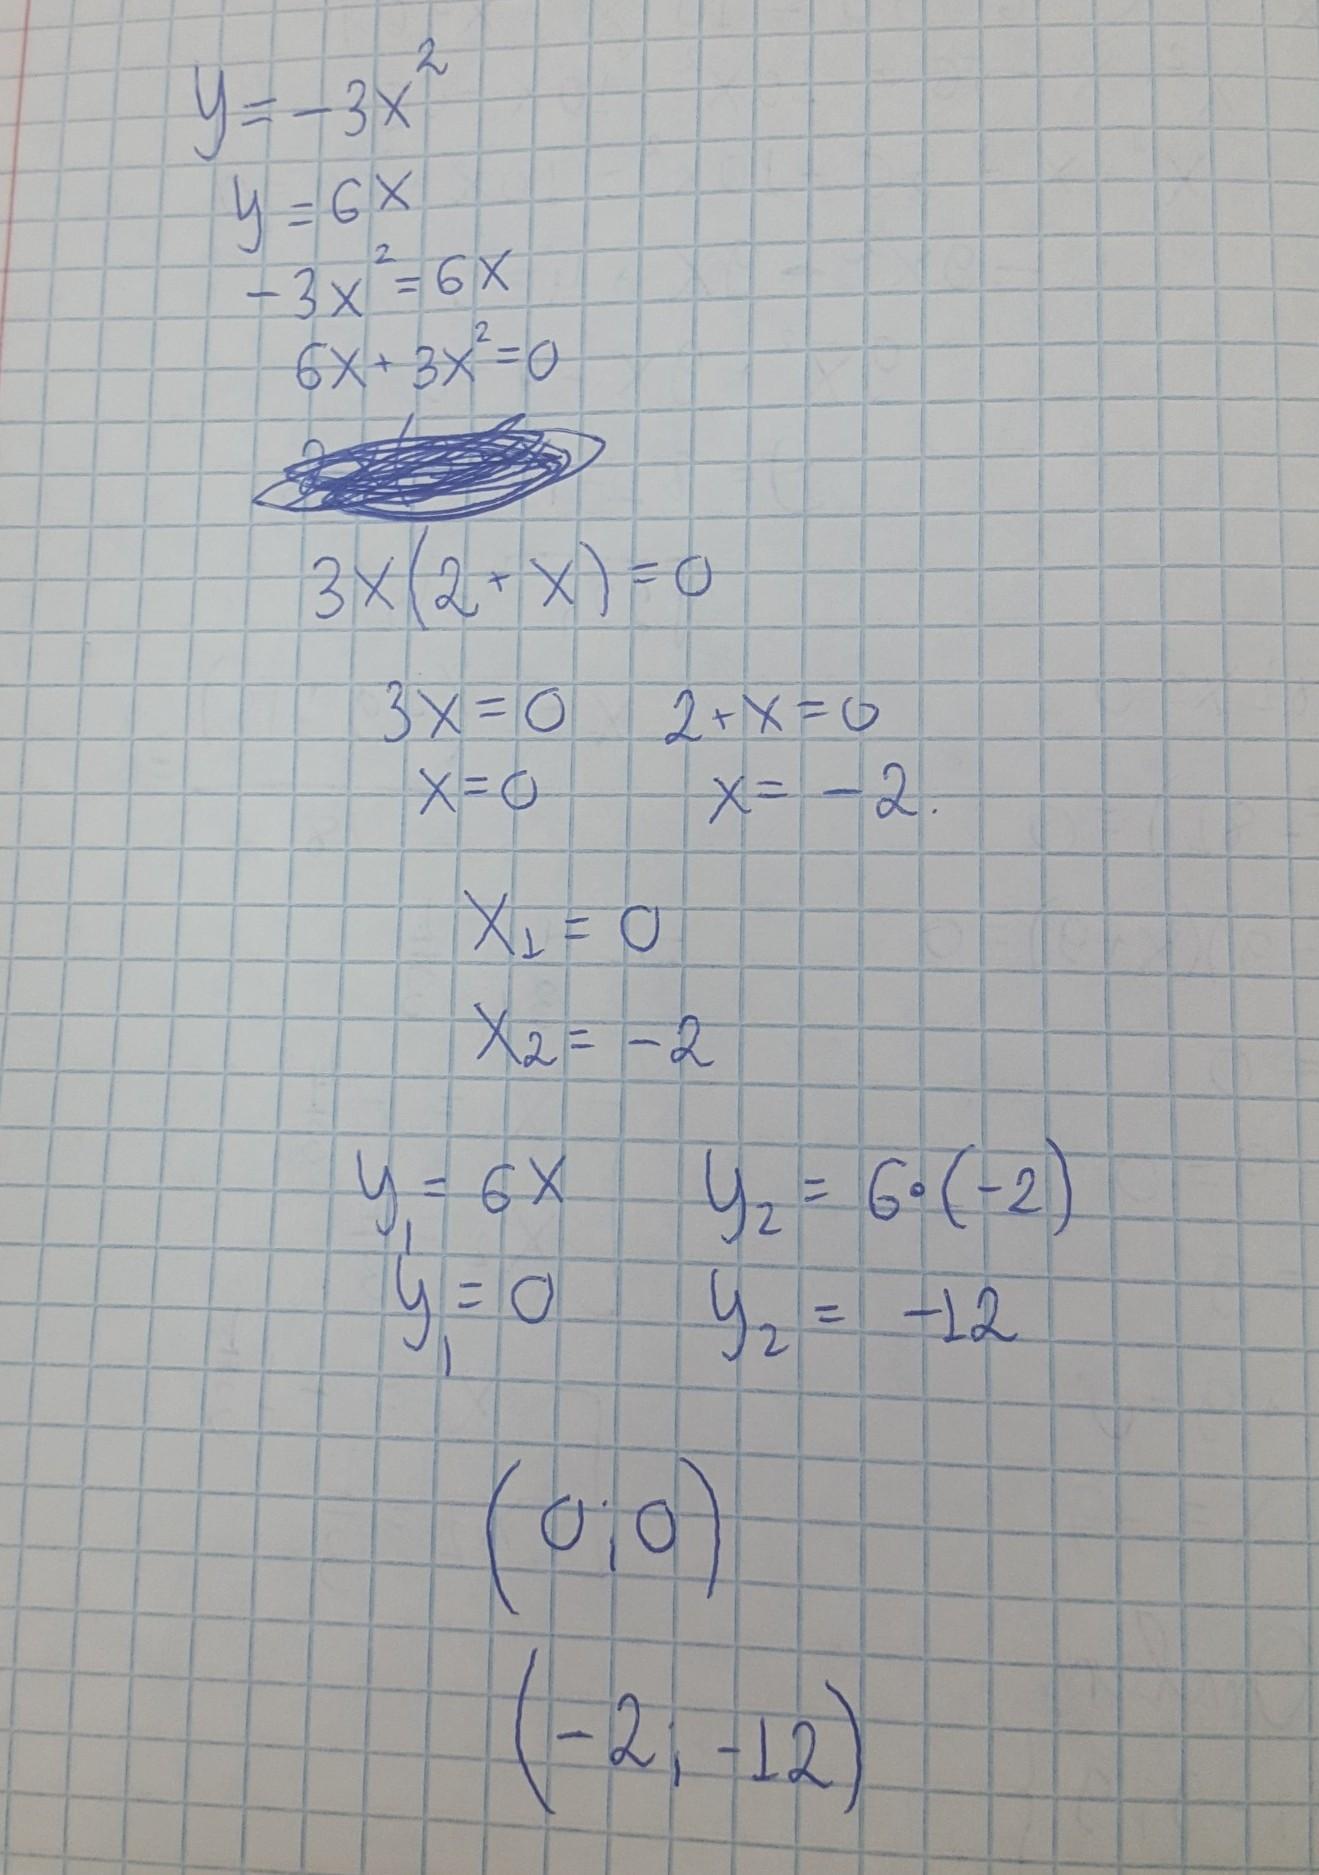 y = -3x²
y = 6x
-3x² = 6x
6x + 3x² = 0
3x(2 + x) = 0
3x = 0 2 + x = 0
x = 0 x = -2.
x₁ = 0
x₂ = -2
y₁ = 6x y₂ = 6•(-2)
y₁ = 0 y₂ = -12
(0; 0)
(-2; -12)